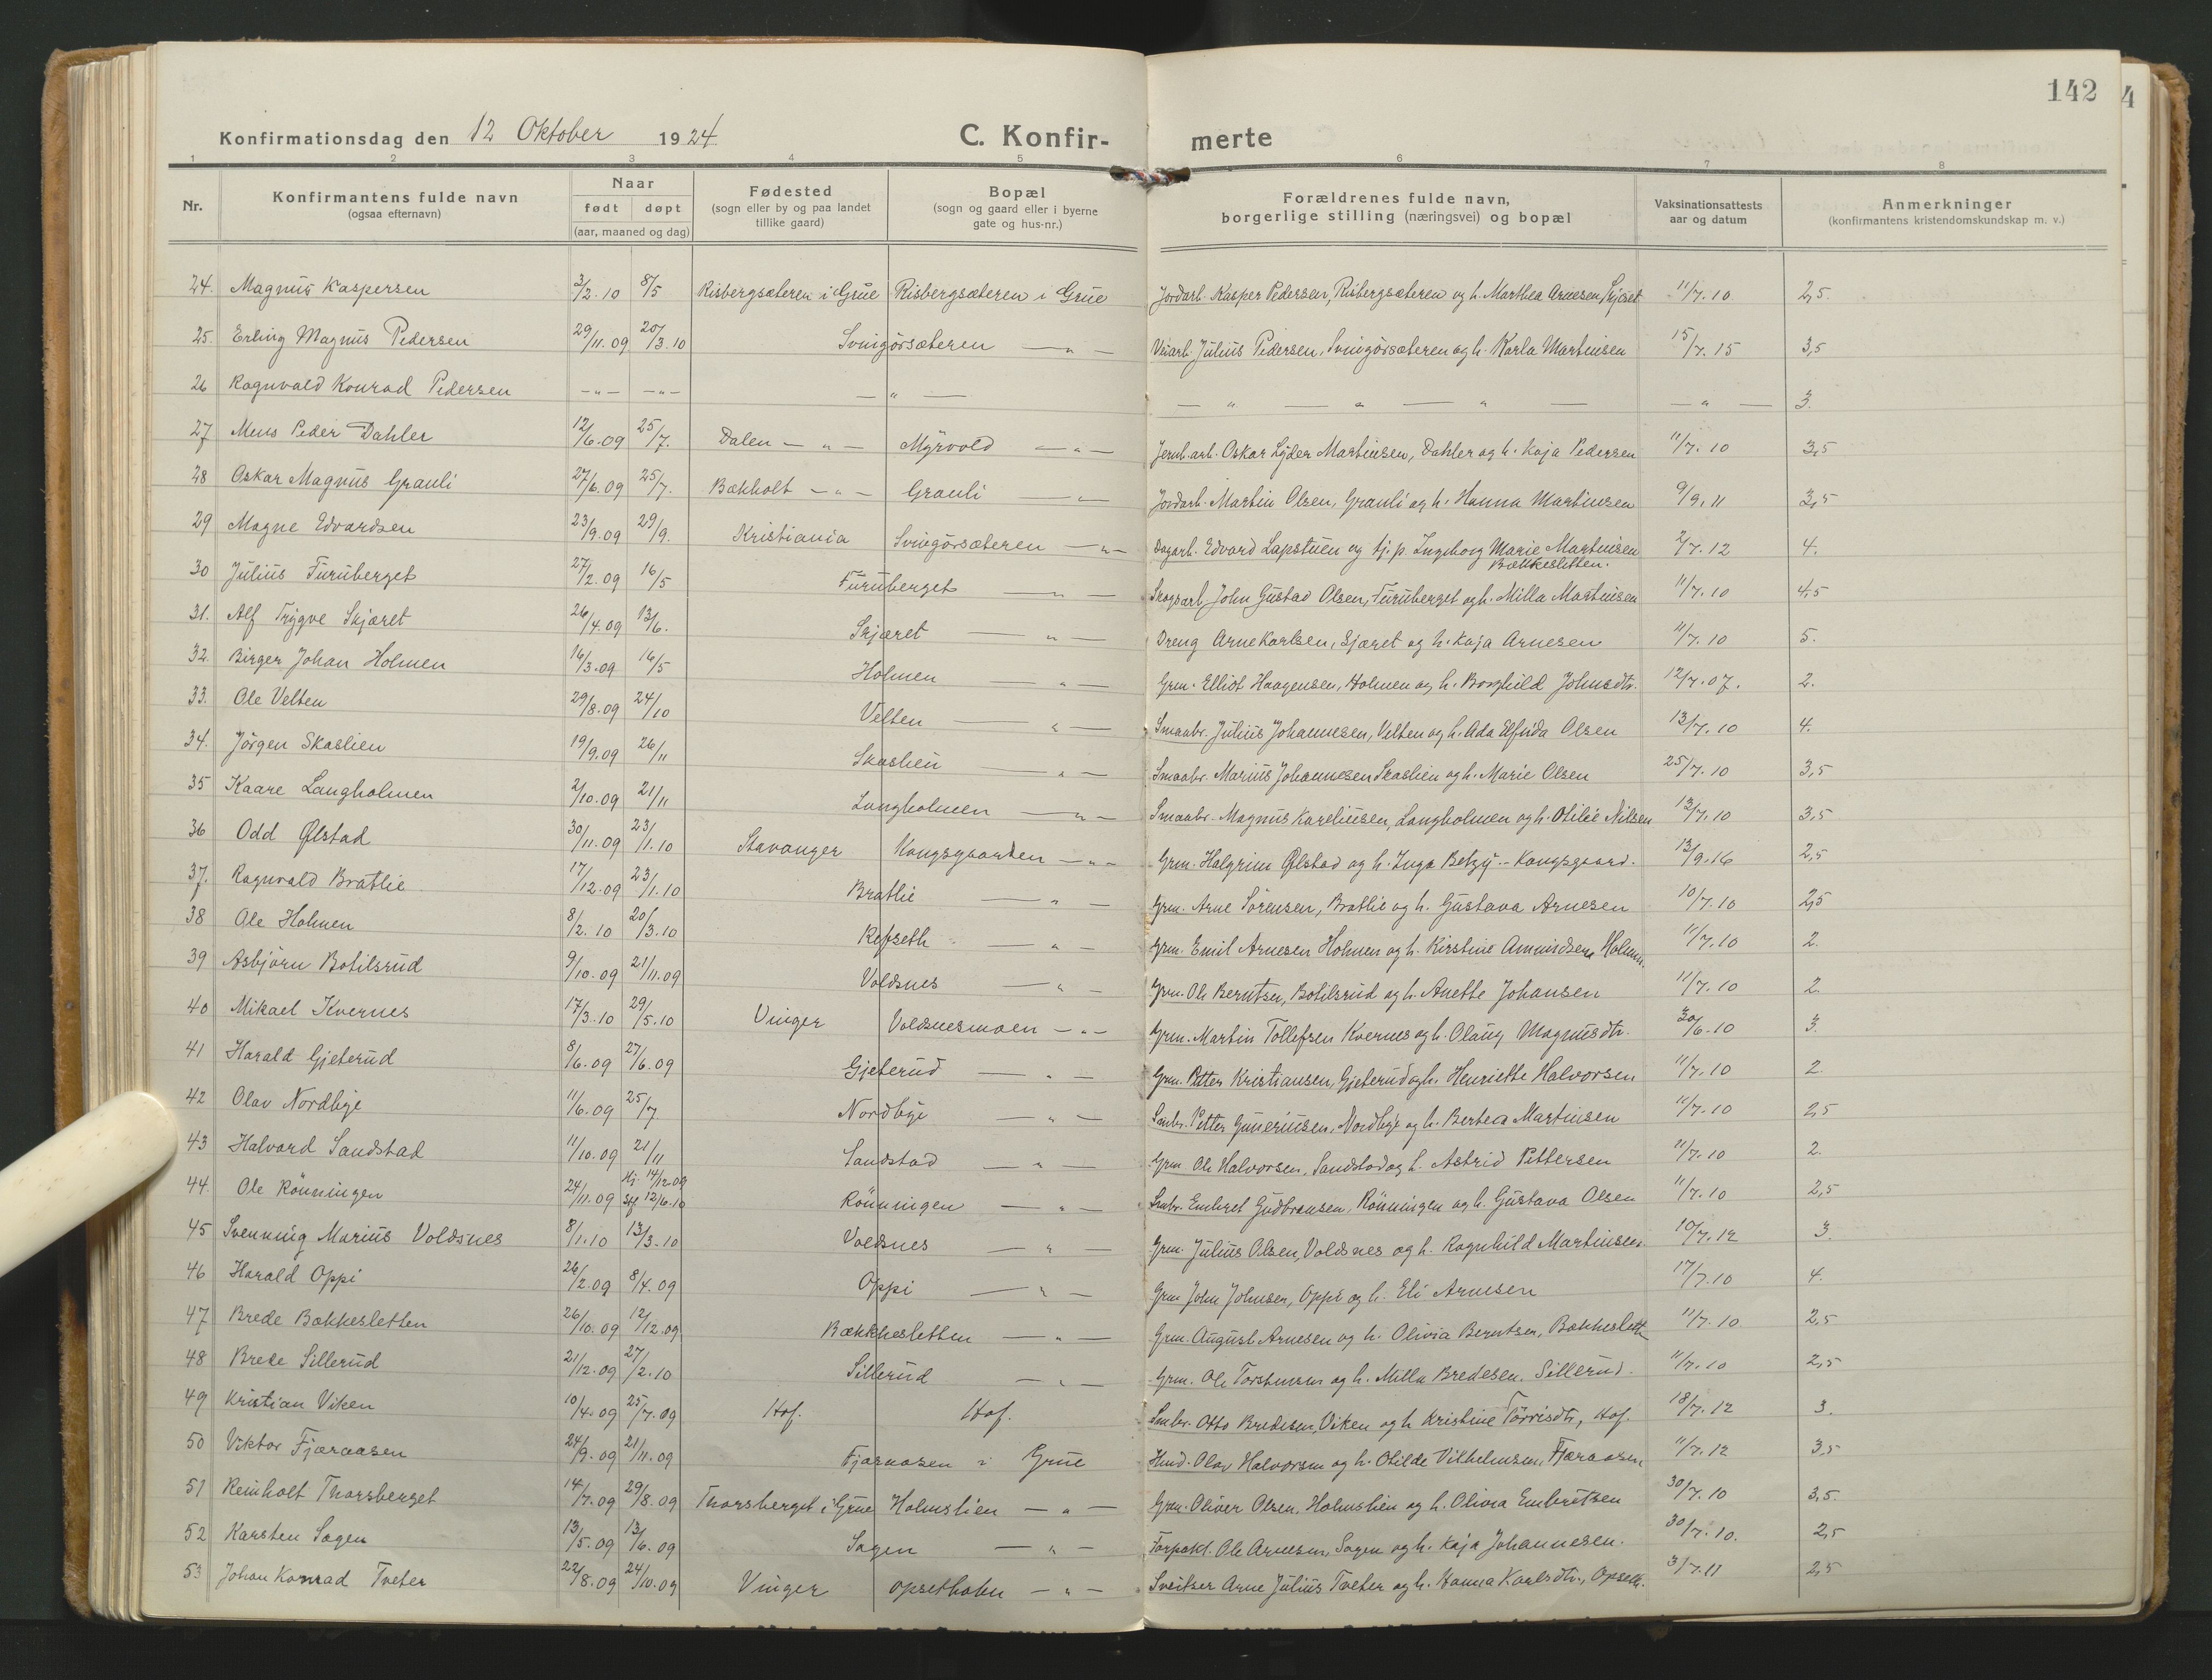 142
4
Konfirmationsdag den 12 Oktober 1924
C. Konfir- merte
1 2 3 4 5 6 7 8
Nr. Konfirmantens fulde navn (ogsaa efternavn) Naar født døpt (aar, maaned og dag) Fødested (sogn eller by og paa landet tillike gaard) Bopæl (sogn og gaard eller i byerne gate og hus-nr.) Forældrenes fulde navn, borgerlige stilling (næringsvei) og bopæl Vaksinationsattests aar og datum Anmerkninger (konfirmantens kristendomskundskap m. v.)
24. Magnus Kaspersen 3/2.10 8/5 Risbergsæteren i Grue Risbergsæteren i Grue Jordarb. Kasper Pedersen, Risbergsæteren og h. Marthea Arnesen, Skjæret 11/7.10 2,5.
25. Erling Magnus Pedersen 29/11.09 20/3.10 Svingörsæteren — " — Veiarb. Julius Pedersen, Svingörsæteren og h. Karla Martinsen 15/7.15 3,5
26 Ragnvald Konrad Pedersen — " — — " — — " — — " — " — " — — " — 3.
27 Mens Peder Dahler 12/6.09 25/7. Dalen — " — Myrvold — " — Jernb.arb. Oskar Lyder Martinsen, Dahler og h. Kaja Pedersen 11/7.10 3,5
28 Oskar Magnus Granli 27/6.09 25/7. Bækholt — " — Granli — " — Jordarb. Martin Olsen, Granli og h. Hanna Martinsen 9/9.11 3,5
29 Magne Edvardsen 23/9.09 29/9. Kristiania Svingörsæteren — " — Dagarb. Edvard Lapstuen og tj.p. Ingeborg Marie Martinsen Bækkesletten. 2/7.12 4.
30 Julius Furuberget 27/2.09 16/5 Furuberget — " — Skogsarb. John Gustad Olsen, Furuberget og h. Milla Martinsen 11/7.10 4,5
31. Alf Trygve Skjæret 26/4.09 13/6. Skjæret — " — Dreng Arne Karlsen, Sjæret og h. Kaja Arnesen 11/7.10 5.
32. Birger Johan Holmen 16/3.09 16/5 Holmen — " — Grm. Elliot Haagensen, Holmen og h. Borghild Johnsdtr. 12/7.07. 2.
33. Ole Velten 29/8.09 24/10 Velten — " — Smaabr. Julius Johannesen, Velten og h. Ada Elfrida Olsen 13/7.10 4.
34. Jörgen Skaslien 19/9.09 26/11 Skaslien — " — Smaabr. Marius Johannesen Skaslien og h. Marie Olsen 25/7.10 3,5
35 Kaare Langholmen 2/10.09 21/11 Langholmen — " — Smaabr. Magnus Kareliusen, Langholmen og h. Otilie Nilsen 12/7.10 3,5
36 Odd Ølstad 30/11.09 23/1.10 Stavanger Kongsgaarden — " — Grm. Halgrim Ølstad og h. Inga Betzy - Kongsgaard. 13/9.16 2,5
37. Ragnvald Bratlie 17/12.09 23/1.10 Bratlie — " — Grm. Arne Sörensen, Bratlie og h. Gustava Arnesen 10/7.10 2,5
38 Ole Holmen 8/2.10 20/3.10 Refseth — " — Grm. Emil Arnesen Holmen og h. Kirstine Amundsen Holmen. 11/7.10 2.
39 Asbjörn Botilsrud 9/10.09 21/11.09 Voldsnes — " — Grm. Ole Berntsen, Botilsrud og h. Anette Johansen 11/7.10 2.
40 Mikael Kvernes 17/3.10 29/5.10 Vinger Voldsnesmoen — " — Grm. Martin Tollefsen Kvernes og h. Olaug Magnusdtr. 30/6.10 3.
41 Harald Gjeterud 8/6.09 27/6.09 Gjeterud — " — Grm. Petter Kristiansen, Gjeterud og h. Henriette Halvorsen 11/7.10 2.
42 Olav Nordbye 11/6.09 25/7 Nordbye — " — Smbr. Petter Gunneriusen, Nordbye og h. Bertea Martinsen 11/7.10 2,5
43 Halvard Sandstad 11/10.09 21/11 Sandstad — " — Grm Ole Halvorsen, Sandstad og h. Astrid Pettersen 11/7.10 2.
44. Ole Rönningen 24/11.09 Hj. 14/12.09 Stf 12/6.10 Rönningen — " — Smbr. Embret Gudbransen, Rönningen og h. Gustava Olsen 11/7.10 2,5
45 Svenning Marius Voldsnes 8/1.10 13/3.10 Voldsnes — " — Grm. Julius Olsen, Voldsnes og h. Ragnhild Martinsen. 10/7.12 3.
46 Harald Oppi 26/2.09 8/4.09 Oppi — " — Grm John Johnsen, Oppi og h. Eli Arnesen 17/7.10 4.
47 Brede Bækkesletten 26/10.09 12/12.09 Bækkesletten — " — Grm. August Arnesen og h. Olivia Berntsen, Bækkeslett 11/7.10 2,5
48 Brede Sillerud 21/12.09 27/2.10 Sillerud — " — Grm. Ole Torstensen og h. Milla Bredesen. Sillerud. 11/7.10 2,5
49 Kristian Viken 10/4.09 25/7.09 Hof. Hof. Smbr. Otto Bredesen, Viken og h Kristine Törrisdtr, Hof. 18/7.12 3.
50 Viktor Fjæraasen 24/9.09 21/11.09 Fjæraasen i Grue Hmd. Olav Halvorsen og h. Otilde Vilhelmsen, Fjæraasen 11/7.12 3,5
51 Reinholt Thorsberget 14/7.09 29/8.09 Thorsberget i Grue Holmslien — " — Grm. Oliver Olsen, Holmslien og h. Olivia Embretsen 30/7.10 3,5.
52 Karsten Sagen 13/5.09 13/6.09 Sagen — " — Forpakt. Ole Arnesen, Sagen og h. Kaja Johannesen. 30/7.10. 2,5
53 Johan Konrad Tveter 22/8.09 24/10.09 Vinger Opsetholm — " — Sveitser Arne Julius Tveter og h. Hanna Karlsdtr., Opseth. 3/7.11 2,5